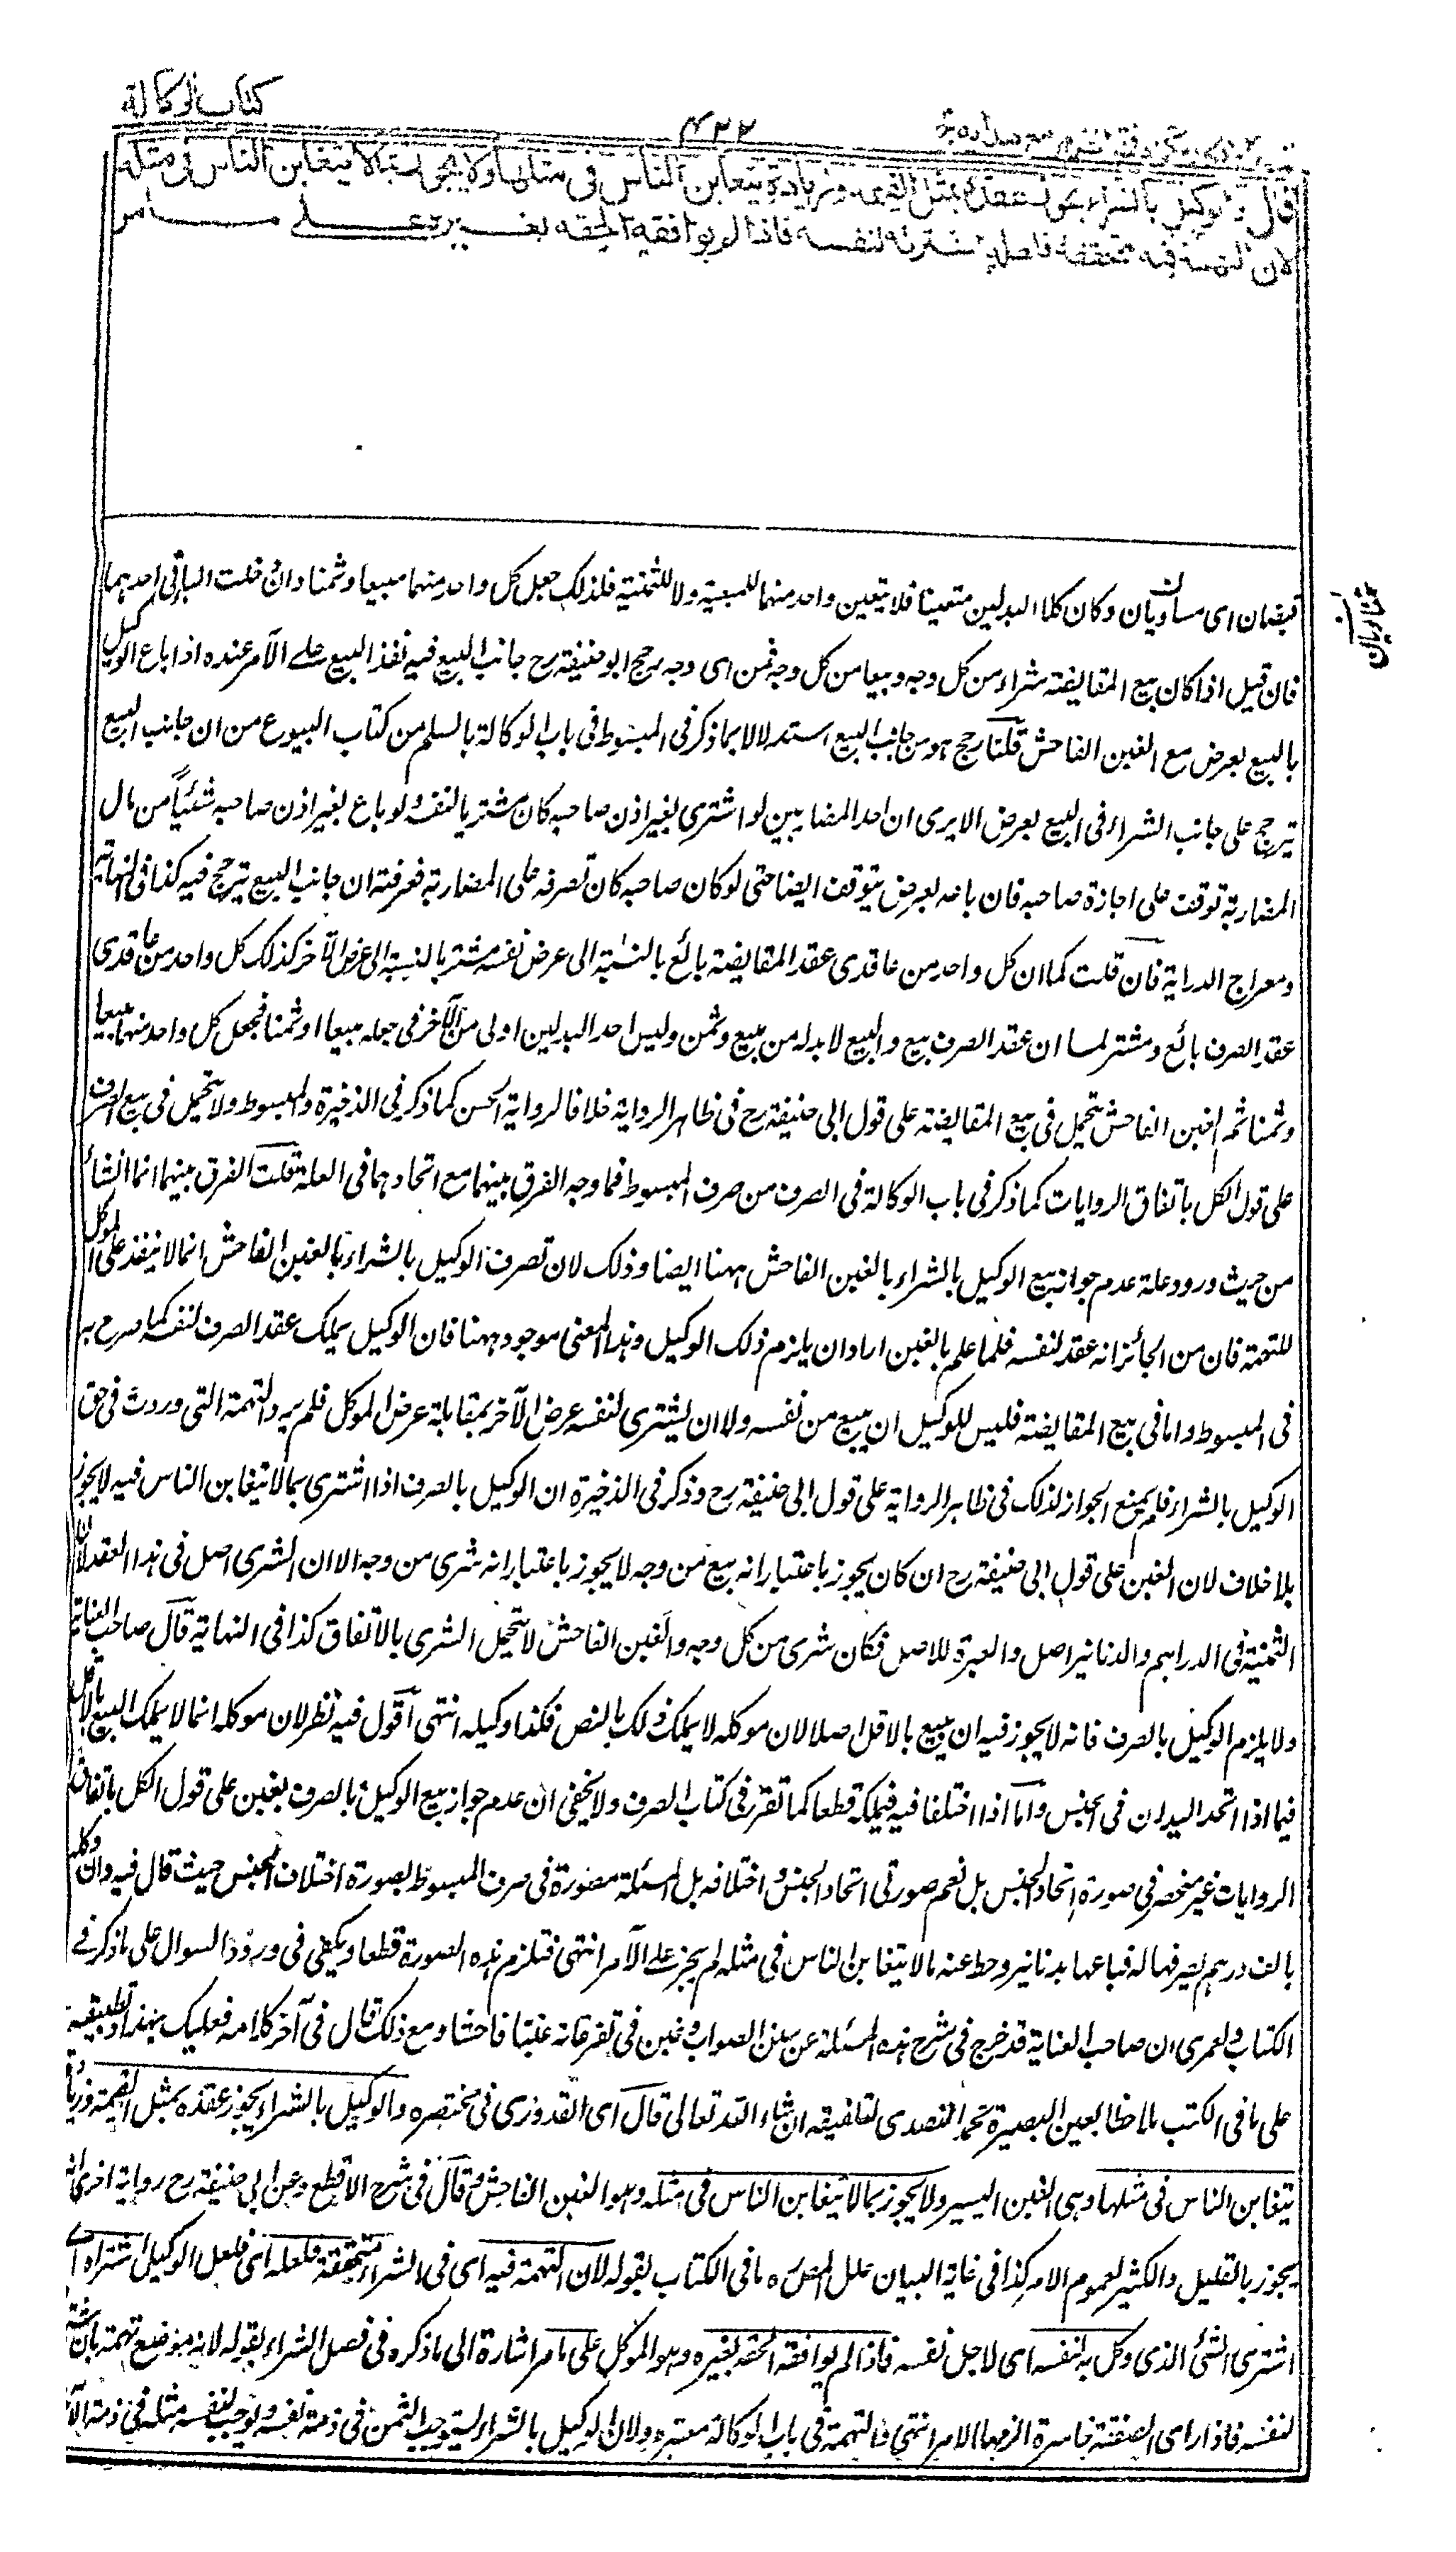 كتاب الوكالة
٤٢٢
قال والوكيل بالشراء يجوز عقده بمثل القيمة وزيادة يتغابن الناس في مثلها ولا يجوز بما لا يتغابن الناس في مثله
لان التهمة فيه متحققة فلعله اشتراه لنفسه فاذا لم يوافقه الحقه بغيره على ما مر
قيضان اى مساويان وكان كلا البدلين متعينا فلا يتعين واحد منهما للمبيعية ولا للثمنية فلذلك جعل كل واحد منهما مبيعا وثمنا وان خلت الباقى احدهما
فان قيل اذا كان بيع المقايضة شراء من كل وجه وبيعا من كل وجه فمن اى وجه رجح ابو حنيفة رح جانب البيع فيه نفذ البيع على الآمر عنده اذا باع الوكيل
بالبيع بعرض مع الغبن الفاحش قلنا رجح هو من جانب البيع استدلالا بما ذكر فى المبسوط فى باب الوكالة بالسلم من كتاب البيوع من ان جانب البيع
يترجح على جانب الشراء فى البيع بعرض الا يرى ان احد المضاربين لو اشترى بغير اذن صاحبه كان مشتريا لنفسه ولو باع بغير اذن صاحبه شيئا من مال
المضاربة توقف على اجازة صاحبه فان باعه بعرض يتوقف ايضا حتى لو كان صاحبه كان تصرفه على المضاربة فعرفت ان جانب البيع يترجح فيه كذا فى النهاية
ومعراج الدراية فان قلت كما ان كل واحد من عاقدى عقد المقايضة بائع بالنسبة الى عرض نفسه مشتر بالنسبة الى عرض الآخر كذلك كل واحد من عاقدى
عقد الصرف بائع ومشتر لما ان عقد الصرف بيع والبيع لا بد له من مبيع وثمن وليس احد البدلين اولى من الآخر فى جعله مبيعا او ثمنا فجعل كل واحد منهما مبيعا
وثمنا ثم الغبن الفاحش يتحمل فى بيع المقايضة على قول ابى حنيفة رح فى ظاهر الرواية خلافا لرواية الحسن كما ذكر فى الذخيرة والمبسوط ولا يتحمل فى بيع الصرف
على قول الكل باتفاق الروايات كما ذكر فى باب الوكالة فى الصرف من صرف المبسوط فما وجه الفرق بينهما مع اتحادهما فى العلة قلت الفرق بينهما انما انشأ
من حيث ورود علة عدم جواز بيع الوكيل بالشراء بالغبن الفاحش ههنا ايضا وذلك لان تصرف الوكيل بالشراء بالغبن الفاحش انما لا ينفذ على الموكل
للتهمة فان من الجائز انه عقد لنفسه فلما علم بالغبن اراد ان يلزم ذلك الوكيل وهذا المعنى موجود ههنا فان الوكيل يملك عقد الصرف لنفسه كما صرح به
فى المبسوط واما فى بيع المقايضة فليس للوكيل ان يبيع من نفسه ولا ان يشترى لنفسه عرض الآخر بمقابلة عرض الموكل فلم يرد التهمة التى وردت فى حق
الوكيل بالشراء فلم يمنع الجواز لذلك فى ظاهر الرواية على قول ابى حنيفة رح وذكر فى الذخيرة ان الوكيل بالصرف اذا اشترى بما لا يتغابن الناس فيه لا يجوز
بلا خلاف لان الغبن على قول ابى حنيفة رح ان كان يجوز باعتبار انه بيع من وجه لا يجوز باعتبار انه شرى من وجه الا ان الشرى اصل فى هذا العقد لان
الثمنية فى الدراهم والدنانير اصل والعبرة للاصل فكان شرى من كل وجه والغبن الفاحش لا يتحمل الشرى بالاتفاق كذا فى النهاية قال صاحب العناية
ولا يلزم الوكيل بالصرف فانه لا يجوز فيه ان يبيع بالاقل اصلا لان موكله لا يملك ذلك بالنص فكذا وكيله انتهى اقول فيه نظر لان موكله انما لا يملك البيع بالاقل
فيما اذا اتحد البدلان فى الجنس واما اذا اختلفا فيه فيملكه قطعا كما تقرر فى كتاب الصرف ولا يخفى ان عدم جواز بيع الوكيل بالصرف بغبن على قول الكل باتفاق
الروايات غير منحصر فى صورة اتحاد الجنس بل تعم صورتى اتحاد الجنس واختلافه بل المسئلة مصورة فى صرف المبسوط بصورة اختلاف الجنس حيث قال فيه وان وكله
بالف درهم يصرفها له فباعها بدنانير وحط عنه ما لا يتغابن الناس فى مثله لم يجز على الآمر انتهى فتلزم هذه الصورة قطعا ويكفى فى ورود السوال على ما ذكر فى
الكتاب ولعمرى ان صاحب العناية قد خرج فى شرح هذه المسئلة عن سنن الصواب وغبن فى تصرفاته غبنا فاحشا ومع ذلك قال فى آخر كلامه فعليك بهذا وتطبيقه
على ما فى الكتب ملاحظا بعين البصيرة تحمد التصدى لتلفيقه ان شاء الله تعالى قال اى القدورى فى مختصره والوكيل بالشراء يجوز عقده بمثل القيمة وزيادة
يتغابن الناس فى مثلها وهى الغبن اليسير ولا يجوز بما لا يتغابن الناس فى مثله وهو الغبن الفاحش وقال فى شرح الاقطع وعن ابى حنيفة رح رواية اخرى انه
يجوز بالقليل والكثير لعموم الامر كذا فى غاية البيان علل المص ره ما فى الكتاب بقوله لان التهمة فيه اى فى الشراء متحققة فلعله اى فلعل الوكيل اشتراه اى
اشترى الشئ الذى وكل به لنفسه اى لاجل نفسه فاذا لم يوافقه الحقه بغيره وهو الموكل على ما مر اشارة الى ما ذكره فى فصل الشراء بقوله لانه موضع تهمة بان اشتراه
لنفسه فاذا راى الصفقة خاسرة الزمها الامر انتهى فالتهمة فى باب الوكالة معتبره ولان الوكيل بالشراء يستوجب الثمن فى ذمة نفسه ويوجب لنفسه مثله فى ذمة الآمر